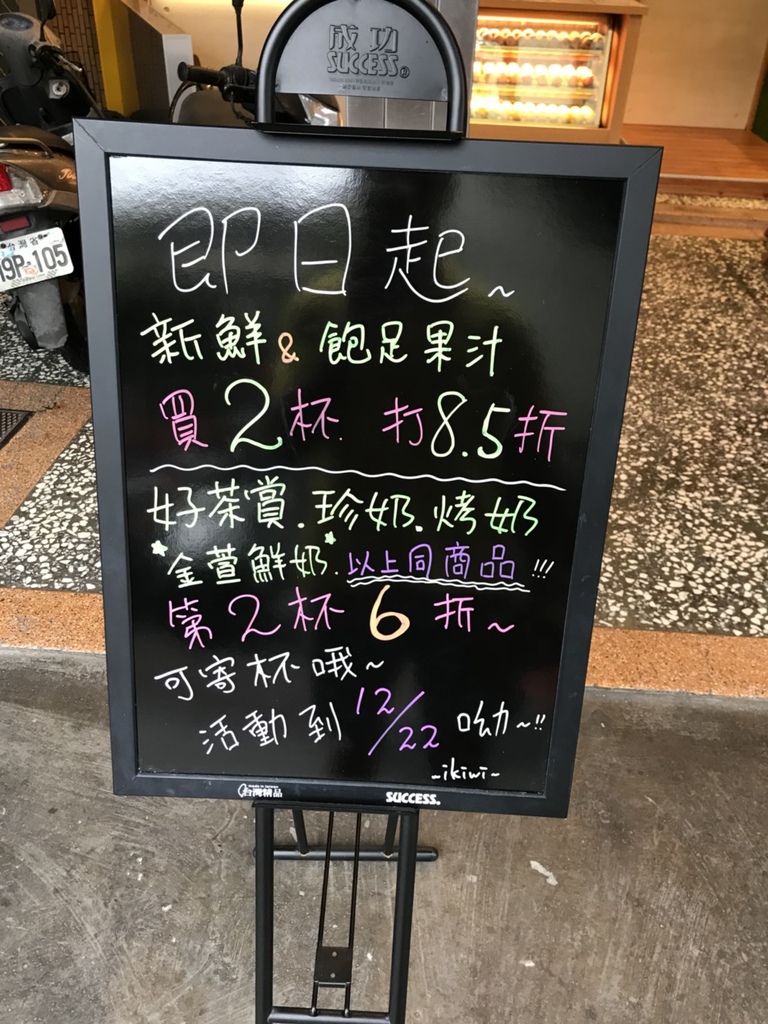 成功
SUCCESS
台灣省
19P-105
即日起~
新鮮 & 飽足果汁
買2杯 打8.5折
好茶賞.珍奶.烤奶
金萱鮮奶.以上同商品!!!
第2杯6折~
可寄杯哦~
活動到12/22呦~!!
~ikiwi~
台灣精品
SUCCESS